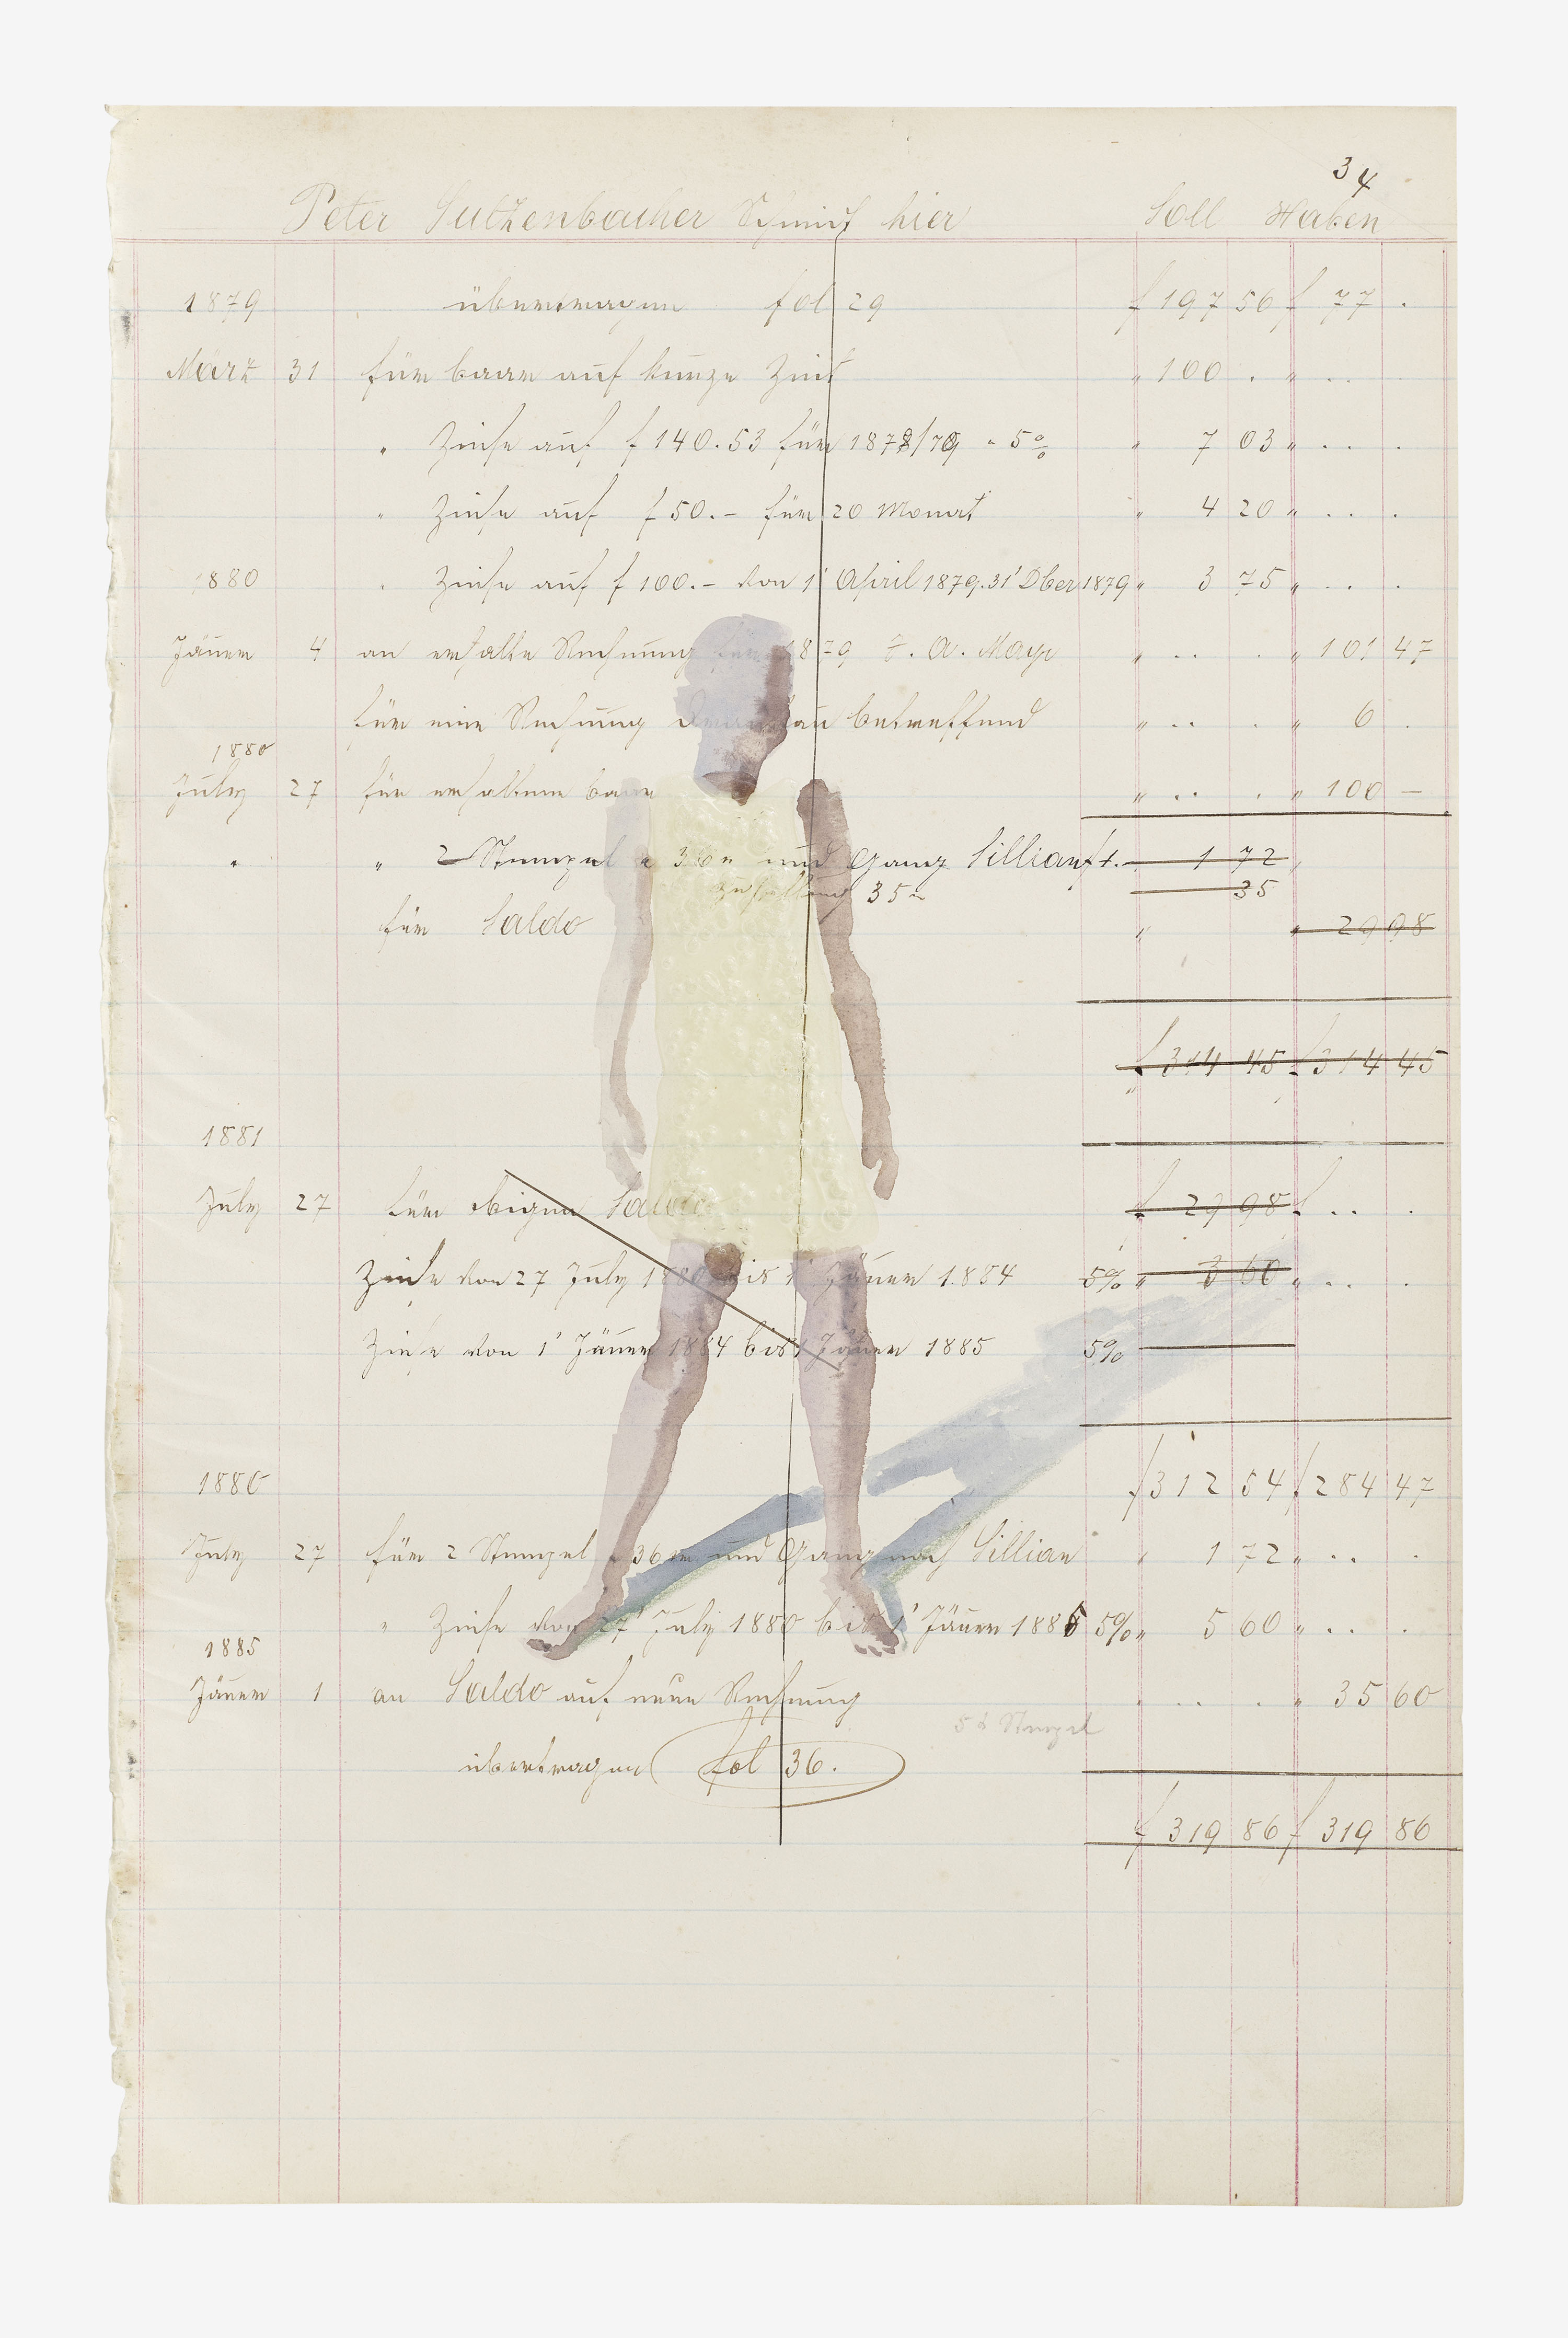 34
Peter Sulzenbacher Schmid hier Soll Haben
1879 übertragen fol 29 f 197 56 f 77 .
März 31 für baar auf kurze Zeit " 100 . " .. .
" Zinse auf f 140.53 für 1878/79 " 5% " 7 03 " .. .
" Zinse auf f 50.– für 20 Monat " 4 20 " .. .
1880 " Zinse auf f 100.– von 1' April 1879. 31' Dber 1879 " 3 75 " .. .
Jäner 4 an erhalte Rechnung für 1879 A. Mayr " .. . " 101 47
für eine Rechnung betreffend " .. . " 6 .
1880
July 27 für erhaltene baar " .. . " 100 –
" " 2 Stempel a 36 " und Gang Sillian 1 72
35 35
für Saldo " " 29 98
f 314 45 f 314 45
1881
July 27 für obigen Saldo f 29 98 f .. .
Zinse von 27 July 1880 bis 1' Jäner 1884 5% " 3 60 " .. .
Zinse von 1' Jäner 1884 bis 1 Jäner 1885 5%
1880 f 312 54 f 284 47
July 27 für 2 Stempel a 36 und Gang nach Sillian " 1 72 " .. .
" Zinse von 27' July 1880 bis 1' Jäner 1885 5% " 5 60 " .. .
1885
Jäner 1 an Saldo auf neue Rechnung " .. . " 35 60
Stempel
übertragen fol 36.
f 319 86 f 319 86